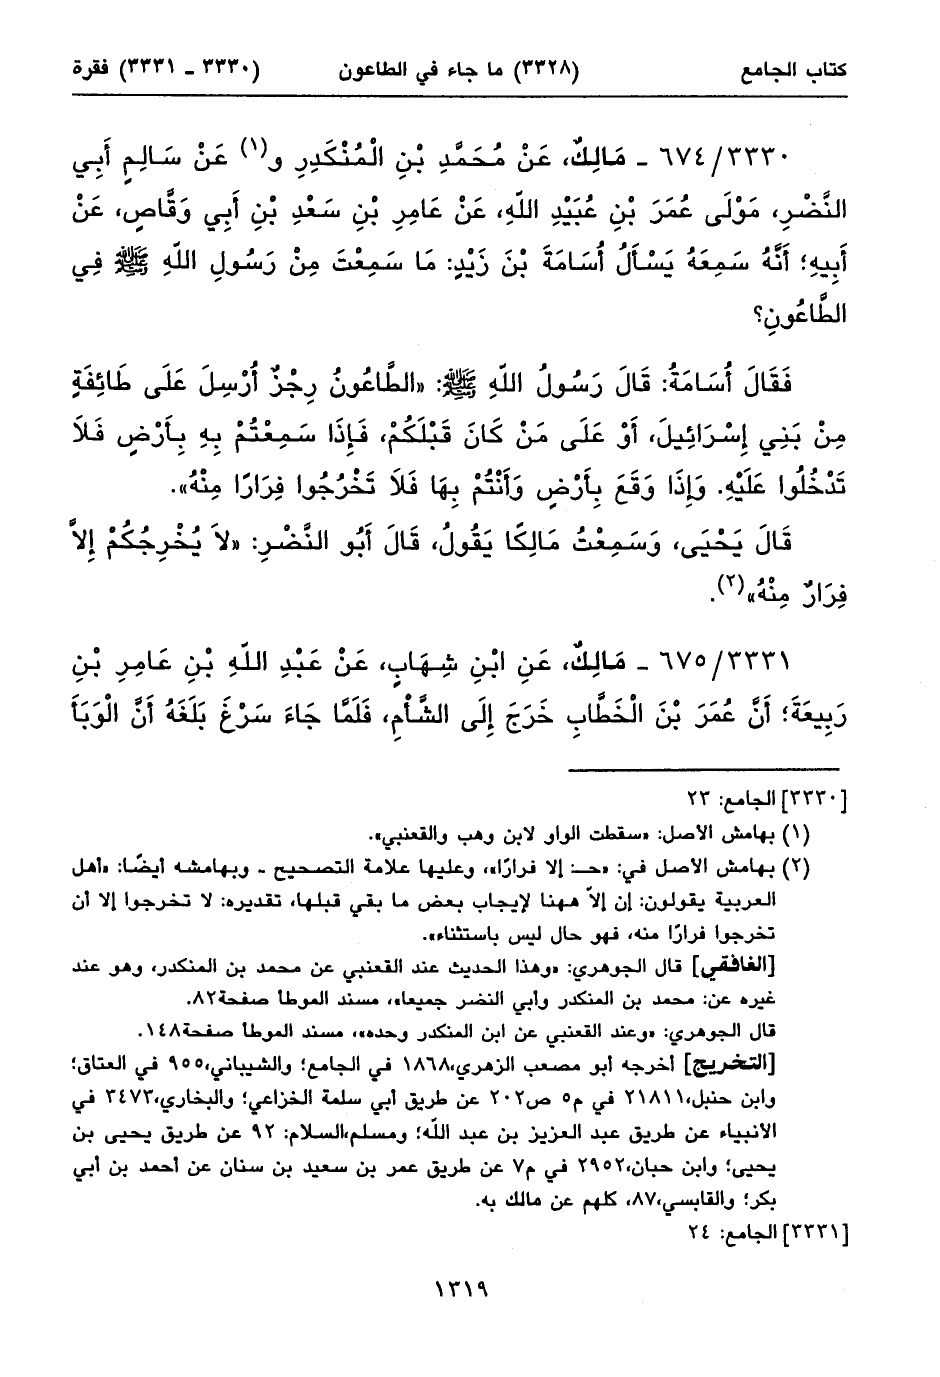 كتاب الجامع (٣٣٢٨) ما جاء في الطاعون (٣٣٣٠ ـ ٣٣٣١) فقرة
٦٧٤/٣٣٣٠ ـ مَالِكٌ، عَنْ مُحَمَّدِ بْنِ الْمُنْكَدِرِ و(١) عَنْ سَالِمٍ أَبِي
النَّضْرِ، مَوْلَى عُمَرَ بْنِ عُبَيْدِ اللّهِ، عَنْ عَامِرِ بْنِ سَعْدِ بْنِ أَبِي وَقَّاصٍ، عَنْ
أَبِيهِ؛ أَنَّهُ سَمِعَهُ يَسْأَلُ أُسَامَةَ بْنَ زَيْدٍ: مَا سَمِعْتَ مِنْ رَسُولِ اللّهِ ﷺ فِي
الطَّاعُونِ؟
فَقَالَ أُسَامَةُ: قَالَ رَسُولُ اللّهِ ﷺ: «الطَّاعُونُ رِجْزٌ أُرْسِلَ عَلَى طَائِفَةٍ
مِنْ بَنِي إِسْرَائِيلَ، أَوْ عَلَى مَنْ كَانَ قَبْلَكُمْ، فَإِذَا سَمِعْتُمْ بِهِ بِأَرْضٍ فَلاَ
تَدْخُلُوا عَلَيْهِ. وَإِذَا وَقَعَ بِأَرْضٍ وَأَنْتُمْ بِهَا فَلاَ تَخْرُجُوا فِرَارًا مِنْهُ».
قَالَ يَحْيَى، وَسَمِعْتُ مَالِكًا يَقُولُ، قَالَ أَبُو النَّضْرِ: «لاَ يُخْرِجُكُمْ إِلاَّ
فِرَارٌ مِنْهُ»(٢).
٦٧٥/٣٣٣١ ـ مَالِكٌ، عَنِ ابْنِ شِهَابٍ، عَنْ عَبْدِ اللّهِ بْنِ عَامِرِ بْنِ
رَبِيعَةَ؛ أَنَّ عُمَرَ بْنَ الْخَطَّابِ خَرَجَ إِلَى الشَّأْمِ، فَلَمَّا جَاءَ سَرْغَ بَلَغَهُ أَنَّ الْوَبَأَ
[٣٣٣٠] الجامع: ٢٣
(١) بهامش الأصل: «سقطت الواو لابن وهب والقعنبي».
(٢) بهامش الأصل في: «حـ: إلا فرارًا»، وعليها علامة التصحيح ـ وبهامشه أيضًا: «أهل
العربية يقولون: إن إلاّ ههنا لإيجاب بعض ما بقي قبلها، تقديره: لا تخرجوا إلا أن
تخرجوا فرارًا منه، فهو حال ليس باستثناء».
[الغافقي] قال الجوهري: «وهذا الحديث عند القعنبي عن محمد بن المنكدر، وهو عند
غيره عن: محمد بن المنكدر وأبي النضر جميعا»، مسند الموطأ صفحة٨٢.
قال الجوهري: «وعند القعنبي عن ابن المنكدر وحده»، مسند الموطأ صفحة١٤٨.
[التخريج] أخرجه أبو مصعب الزهري،١٨٦٨ في الجامع؛ والشيباني،٩٥٥ في العتاق؛
وابن حنبل،٢١٨١١ في م٥ ص٢٠٢ عن طريق أبي سلمة الخزاعي؛ والبخاري،٣٤٧٣ في
الأنبياء عن طريق عبد العزيز بن عبد الله؛ ومسلم،السلام: ٩٢ عن طريق يحيى بن
يحيى؛ وابن حبان،٢٩٥٢ في م٧ عن طريق عمر بن سعيد بن سنان عن أحمد بن أبي
بكر؛ والقابسي،٨٧، كلهم عن مالك به.
[٣٣٣١] الجامع: ٢٤
١٣١٩